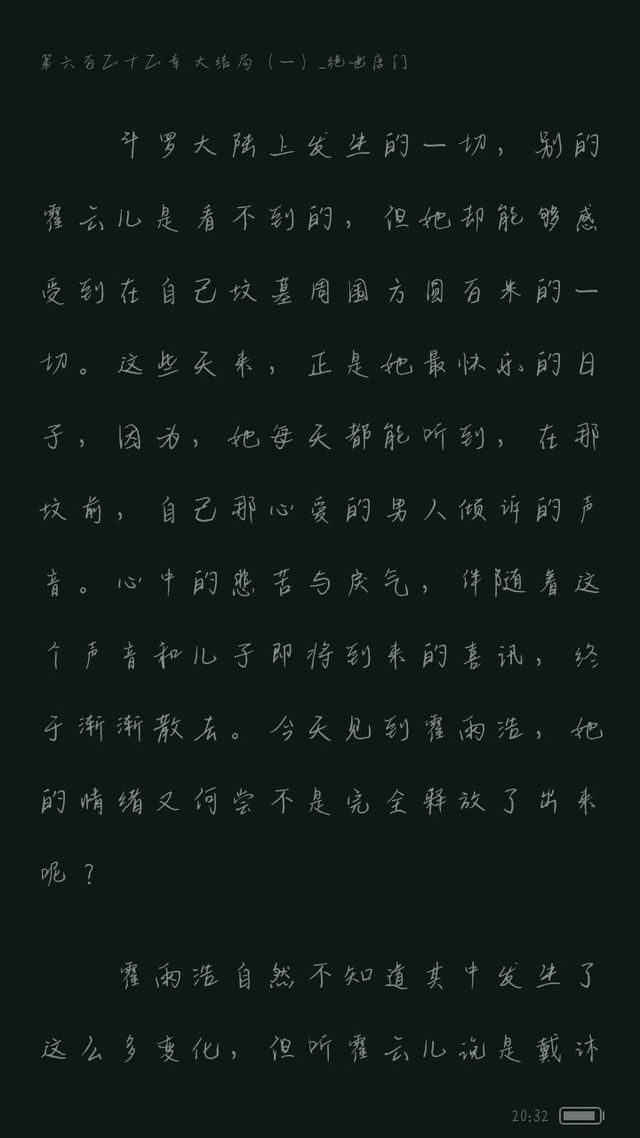 第六百五十五章 大结局（一）_绝世唐门
斗罗大陆上发生的一切，别的
霍云儿是看不到的，但她却能够感
受到在自己坟墓周围方圆百米的一
切。这些天来，正是她最快乐的日
子，因为，她每天都能听到，在那
坟前，自己那心爱的男人倾诉的声
音。心中的悲苦与戾气，伴随着这
个声音和儿子即将到来的喜讯，终
于渐渐散去。今天见到霍雨浩，她
的情绪又何尝不是完全释放了出来
呢？
霍雨浩自然不知道其中发生了
这么多变化，但听霍云儿说是戴沐
20:32